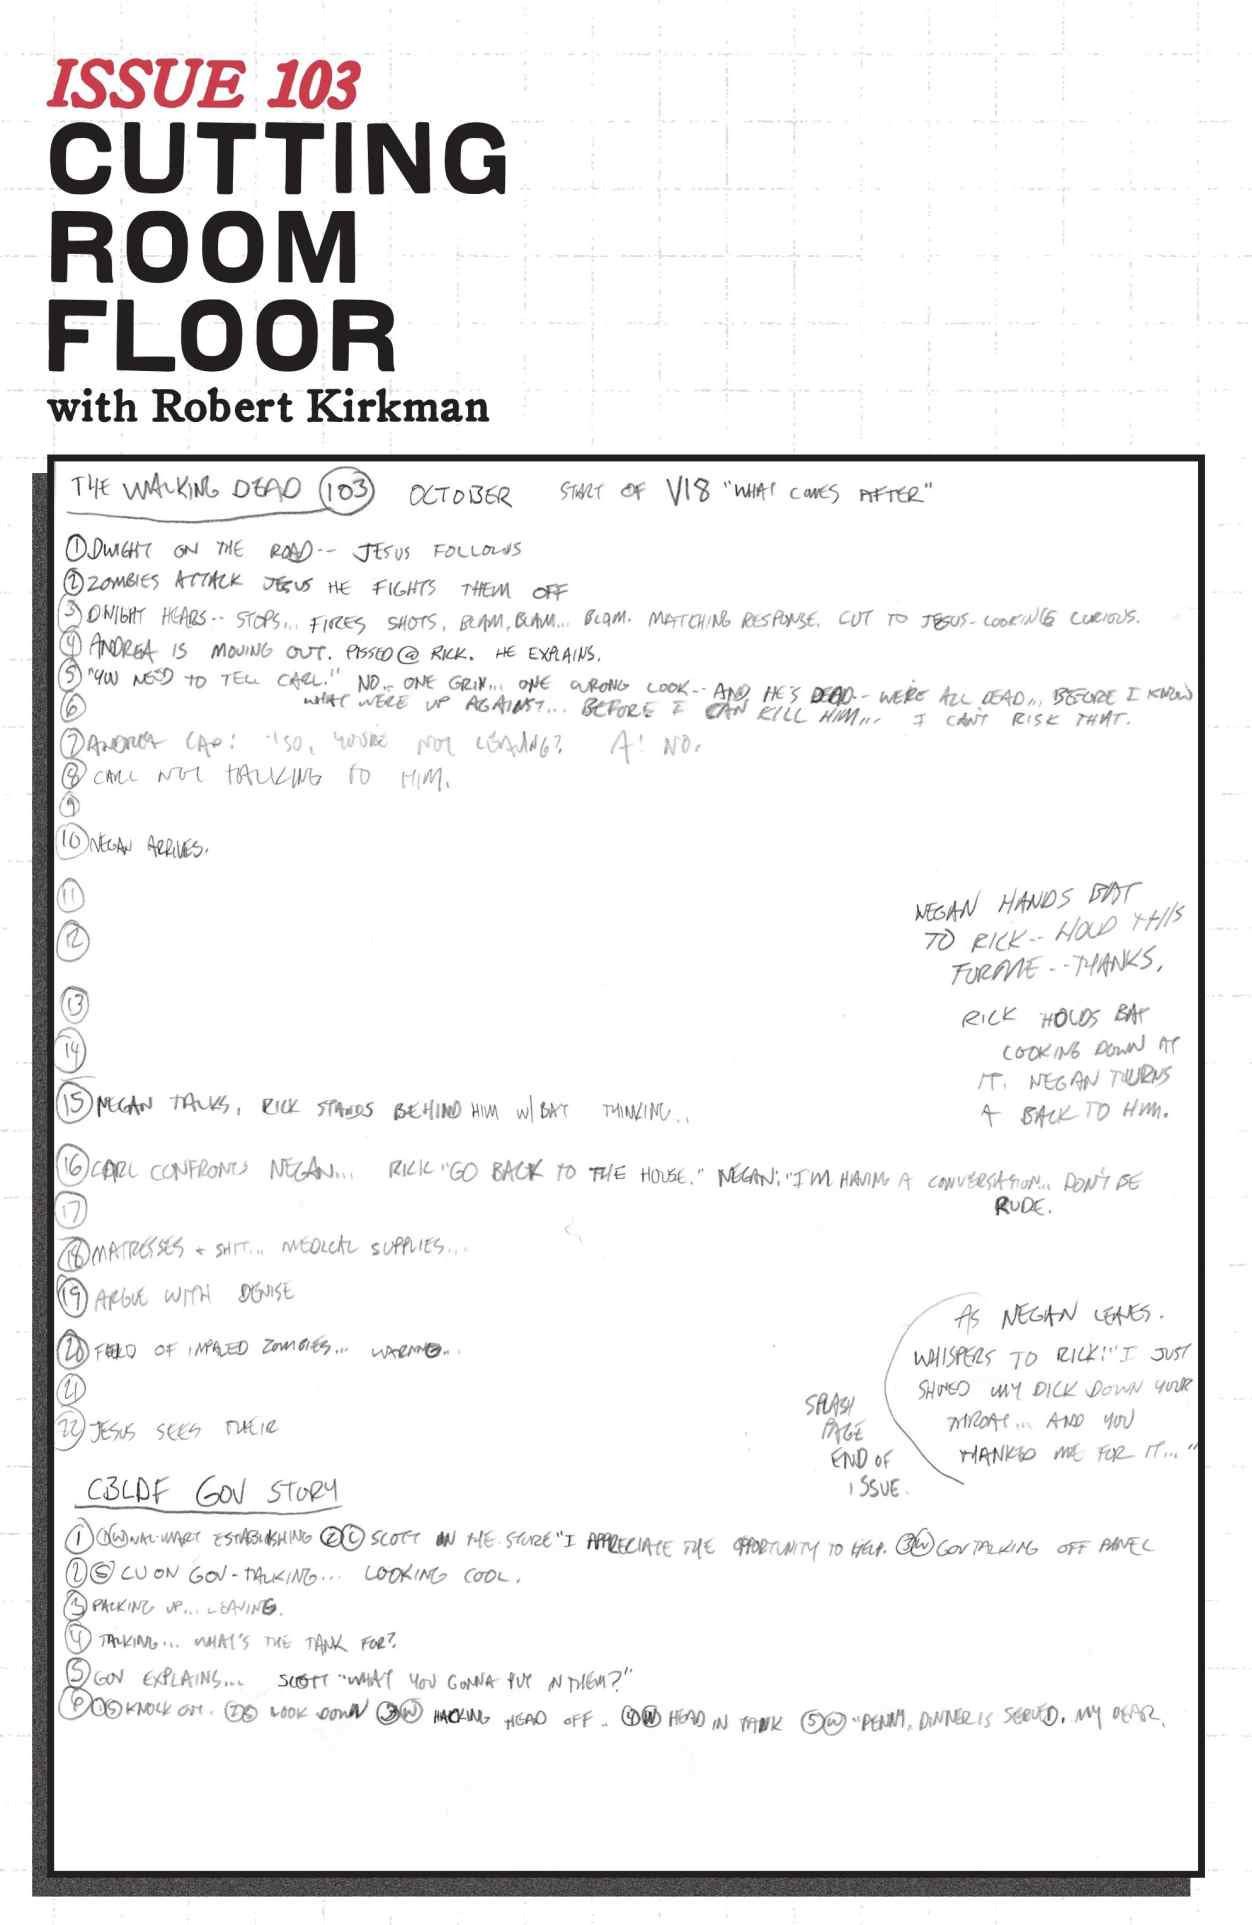 ISSUE 103
CUTTING
ROOM
FLOOR
with Robert Kirkman
THE WALKING DEAD 103 OCTOBER START OF V18 "WHAT COMES AFTER"
1 DWIGHT ON THE ROAD-- JESUS FOLLOWS
2 ZOMBIES ATTACK JESUS HE FIGHTS THEM OFF
3 DWIGHT HEARS-- STOPS... FIRES SHOTS, BLAM, BLAM... BLAM. MATCHING RESPONSE. CUT TO JESUS-LOOKING CURIOUS.
4 ANDREA IS MOVING OUT. PISSED @ RICK. HE EXPLAINS.
5 "YOU NEED TO TELL CARL." NO... ONE GRIN... ONE WRONG LOOK-- AND HE'S DEAD-- WE'RE ALL DEAD... BEFORE I KNOW
6 WHAT WERE UP AGAINST... BEFORE I CAN KILL HIM... I CAN'T RISK THAT.
7 ANDREA CAP: "SO, YOU'RE NOT LEAVING? A: NO.
8 CARL NOT TALKING TO HIM.
9
10 NEGAN ARRIVES.
11
NEGAN HANDS BAT
12
TO RICK-- HOLD THIS
FOR ME--THANKS.
13
RICK HOLDS BAT
14
LOOKING DOWN AT
IT. NEGAN TURNS
A BACK TO HIM.
15 NEGAN TALKS, RICK STANDS BEHIND HIM W/ BAT THINKING...
16 CARL CONFRONTS NEGAN... RICK "GO BACK TO THE HOUSE." NEGAN: "I'M HAVING A CONVERSATION... DON'T BE
RUDE.
17
18 MATRESSES + SHIT... MEDICAL SUPPLIES...
19 ARGUE WITH DENISE
20 FIELD OF IMPALED ZOMBIES... WARNING...
21
22 JESUS SEES THEIR
AS NEGAN LEAVES.
WHISPERS TO RICK: "I JUST
SHOVED MY DICK DOWN YOUR
THROAT... AND YOU
THANKED ME FOR IT..."
SPLASH
PAGE
END OF
ISSUE.
CBLDF GOV STORY
1 1 W WAL-MART ESTABLISHING 2 C SCOTT IN THE STORE "I APPRECIATE THE OPPORTUNITY TO HELP. 3 W GOV TALKING OFF PANEL
2 S CU ON GOV-TALKING... LOOKING COOL.
3 PACKING UP... LEAVING.
4 TALKING... WHAT'S THE TANK FOR?
5 GOV EXPLAINS... SCOTT "WHAT YOU GONNA PUT IN THEM?"
6 1 S KNOCK OUT. 2 S LOOK DOWN 3 W HACKING HEAD OFF.. 4 W HEAD IN TANK 5 W "PENNY, DINNER IS SERVED, MY DEAR.